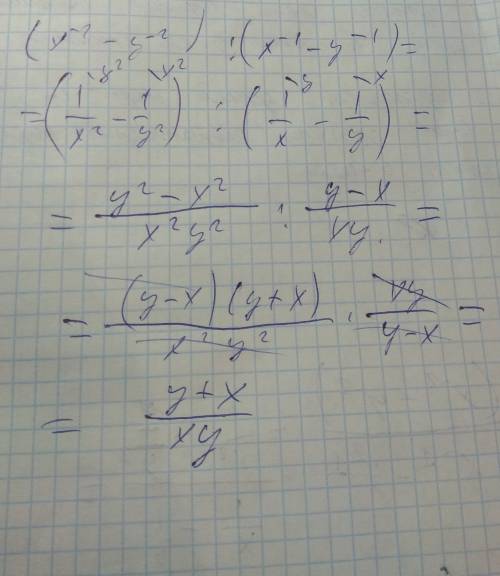 (x⁻² − y⁻²) : (x⁻¹ − y⁻¹) =
= (1/x² \y² − 1/y² \x²) : (1/x \y − 1/y \x) =
= (y² − x²)/(x²y²) : (y − x)/(xy) =
= ((y−x)(y+x))/(x² y²) · (xy)/(y−x) =
= (y + x)/(xy)